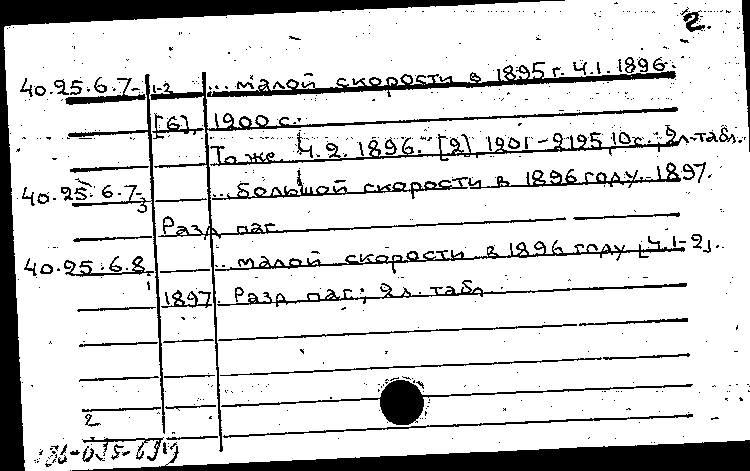 2.
40.25.6.7- 1-2 ...малой скорости в 1895 г. Ч.1. 1896.
[6], 1900 с.
То же. Ч.2. 1896. [2], 1901-2195, 10 с.; 2 л. табл.
40.25.6.7- 3 ...большой скорости в 1896 году. 1897.
Разд. паг.
40.25.6.8 1 ...малой скорости в 1896 году [Ч.1-2].
1897. Разд. паг.; 2 л. табл.
2